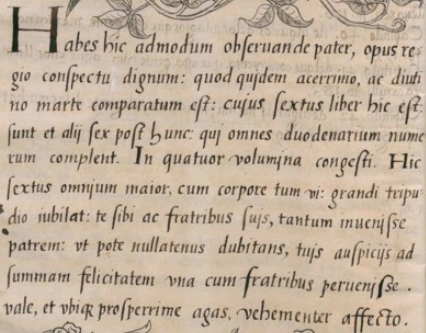 Habes hic admodum obseruande pater, opus re-
gio conspectu dignum: quod quidem acerrimo, ac diuti
no marte comparatum est: cujus sextus liber hic est:
sunt et alij sex post hunc: quj omnes duodenarium nume
rum complent. In quatuor volumina congesti. Hic
sextus omnium maior, cum corpore tum vi: grandi tripu-
dio iubilat: te sibi ac fratribus suis, tantum inuenisse
patrem: vt pote nullatenus dubitans, tuis auspicijs ad
summam felicitatem vna cum fratribus peruenisse.
vale, et vbique prosperrime agas, vehementer affecto.